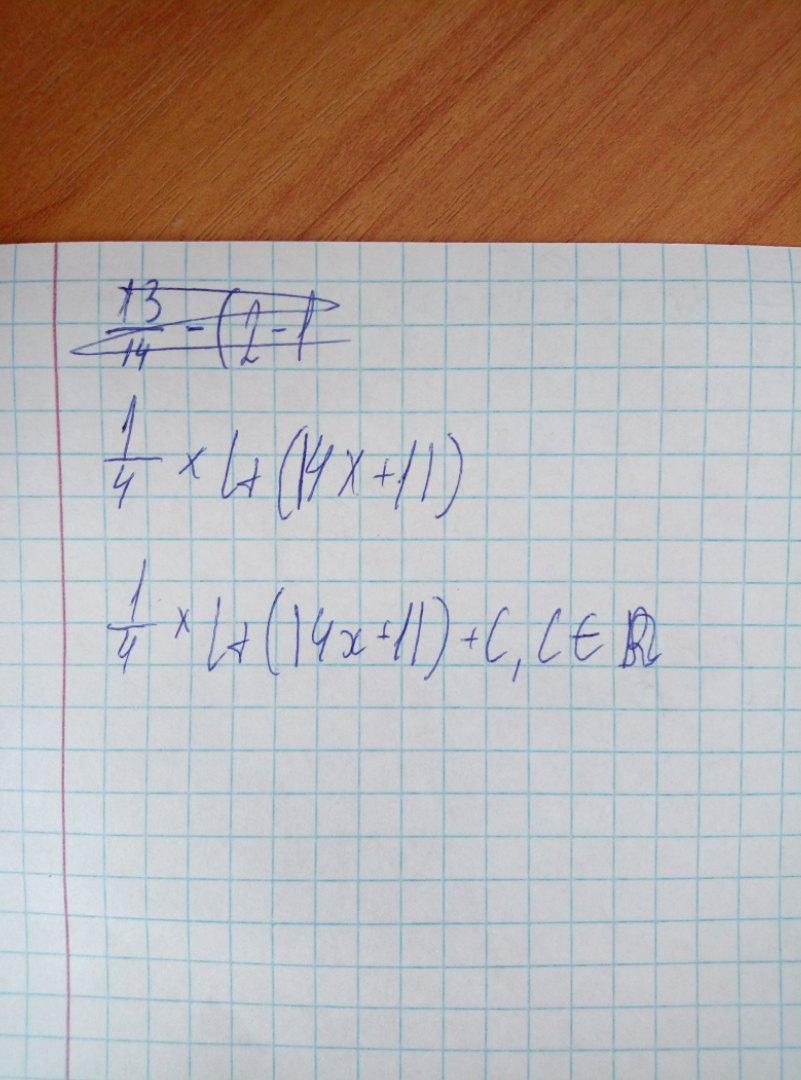 13/14 - (2 - 1
1/4 × ln (14x + 11)
1/4 × ln (14x + 11) + C, C ∈ ℝ